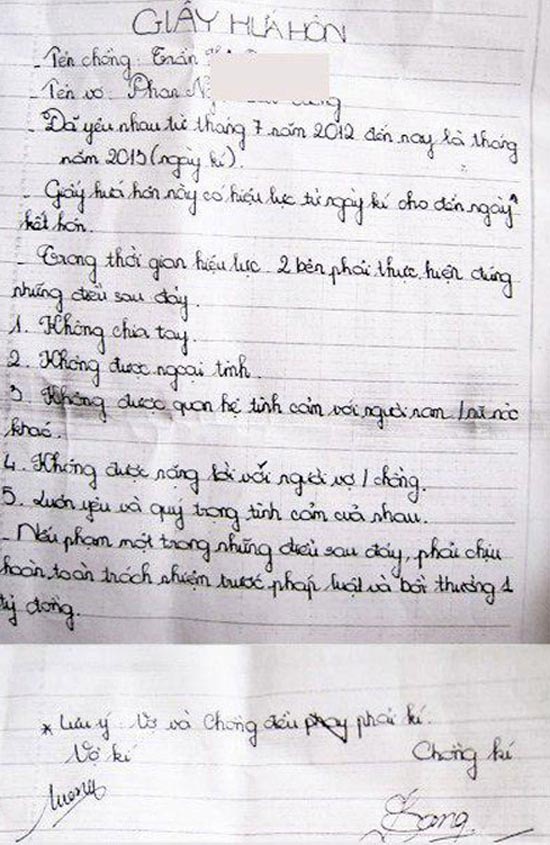 GIẤY HỨA HÔN
- Tên chồng: Trần
- Tên vợ: Phan
- Đã yêu nhau từ tháng 7 năm 2012 đến nay là tháng
năm 2015 (ngày kí).
- Giấy hứa hôn này có hiệu lực từ ngày kí cho đến ngày
kết hôn.
- Trong thời gian hiệu lực. 2 bên phải thực hiện đúng
những điều sau đây.
1. Không chia tay.
2. Không được ngoại tình.
3. Không được quan hệ tình cảm với người nam / nữ nào
khác.
4. Không được nặng lời với người vợ / chồng.
5. Luôn yêu và quý trọng tình cảm của nhau.
- Nếu phạm một trong những điều sau đây, phải chịu
hoàn toàn trách nhiệm trước pháp luật và bồi thường 1
tỷ đồng.
* Lưu ý: Vợ và Chồng đều phải kí.
Vợ kí Chồng kí